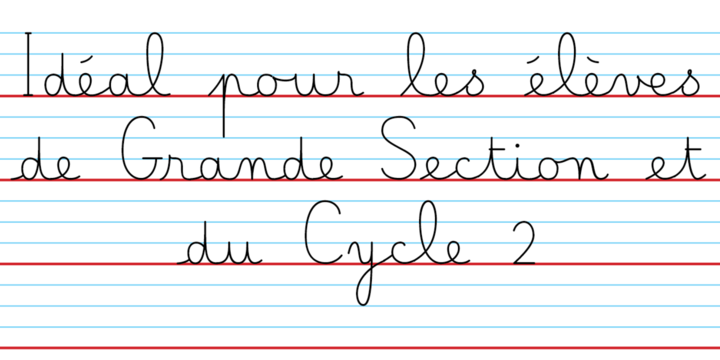 Idéal pour les élèves
de Grande Section et
du Cycle 2